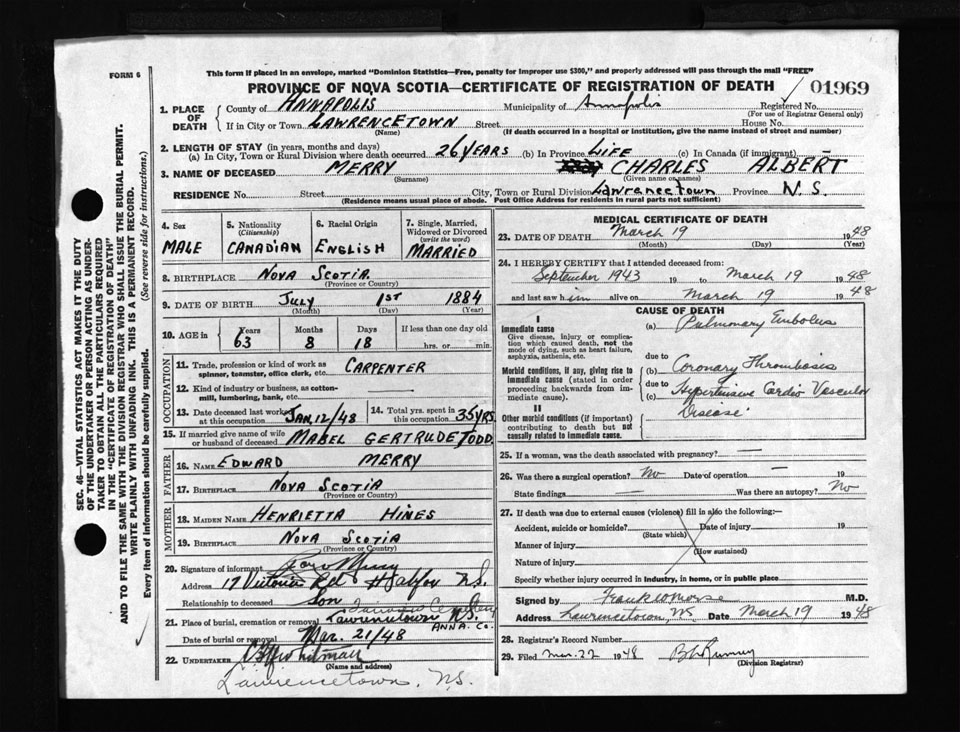 FORM 6
This form if placed in an envelope, marked "Dominion Statistics—Free, penalty for improper use $300," and properly addressed will pass through the mail "FREE"
PROVINCE OF NOVA SCOTIA—CERTIFICATE OF REGISTRATION OF DEATH
01969
1. PLACE OF DEATH
County of ANNAPOLIS Municipality of Annapolis Registered No.
(For use of Registrar General only)
If in City or Town LAWRENCETOWN Street House No.
(Name) (If death occurred in a hospital or institution, give the name instead of street and number)
2. LENGTH OF STAY (in years, months and days)
(a) In City, Town or Rural Division where death occurred 26 YEARS (b) In Province LIFE (c) In Canada (if immigrant) —
3. NAME OF DECEASED MERRY CHARLES ALBERT
(Surname) (Given name or names)
RESIDENCE No. Street City, Town or Rural Division Lawrencetown Province N.S.
(Residence means usual place of abode. Post Office Address for residents in rural parts not sufficient)
SEC. 46—VITAL STATISTICS ACT MAKES IT THE DUTY
OF THE UNDERTAKER OR PERSON ACTING AS UNDER-
TAKER TO OBTAIN ALL THE PARTICULARS REQUIRED
IN THE "CERTIFICATE OF REGISTRATION OF DEATH"
AND TO FILE THE SAME WITH THE DIVISION REGISTRAR WHO SHALL ISSUE THE BURIAL PERMIT.
WRITE PLAINLY WITH UNFADING INK. THIS IS A PERMANENT RECORD.
Every item of information should be carefully supplied. (See reverse side for instructions.)
4. Sex
MALE
5. Nationality
(Citizenship)
CANADIAN
6. Racial Origin
ENGLISH
7. Single, Married,
Widowed or Divorced
(write the word)
MARRIED
8. BIRTHPLACE NOVA SCOTIA
(Province or Country)
9. DATE OF BIRTH July 1ST 1884
(Month) (Day) (Year)
10. AGE in
Years Months Days If less than one day old
63 8 18 hrs. or min.
OCCUPATION
11. Trade, profession or kind of work as CARPENTER
spinner, teamster, office clerk, etc.
12. Kind of industry or business, as cotton-
mill, lumbering, bank, etc.
13. Date deceased last worked
at this occupation JAN. 12/48
14. Total yrs. spent in
this occupation 35 YRS.
15. If married give name of wife
or husband of deceased MABEL GERTRUDE TODD.
FATHER
16. NAME EDWARD MERRY
17. BIRTHPLACE NOVA SCOTIA
(Province or Country)
MOTHER
18. MAIDEN NAME HENRIETTA HINES
19. BIRTHPLACE NOVA SCOTIA
(Province or Country)
20. Signature of informant Merry
Address 17 Victoria Rd Halifax N.S.
Relationship to deceased Son
21. Place of burial, cremation or removal Lawrencetown N.S.
ANNA. CO.
Date of burial or removal Mar. 21/48
22. UNDERTAKER Whitman
(Name and address)
Lawrencetown, N.S.
MEDICAL CERTIFICATE OF DEATH
23. DATE OF DEATH March 19 1948
(Month) (Day) (Year)
24. I HEREBY CERTIFY that I attended deceased from:
September 1943 19 to March 19 1948
and last saw him alive on March 19 1948
CAUSE OF DEATH
I
Immediate cause
Give disease, injury or complication which caused death, not the mode of dying, such as heart failure, asphyxia, asthenia, etc.
(a) Pulmonary Embolus
due to
Morbid conditions, if any, giving rise to immediate cause (stated in order proceeding backwards from immediate).
(b) Coronary Thrombosis
due to
(c) Hypertensive Cardio Vascular
Disease
II
Other morbid conditions (if important) contributing to death but not causally related to immediate cause.
25. If a woman, was the death associated with pregnancy? —
26. Was there a surgical operation? No Date of operation — 19
State findings — Was there an autopsy? No
27. If death was due to external causes (violence) fill in also the following:—
Accident, suicide or homicide? Date of injury 19
(State which)
Manner of injury
(How sustained)
Nature of injury
Specify whether injury occurred in industry, in home, or in public place
Signed by Frank W Morse M.D.
Address Lawrencetown, NS Date March 19 1948
28. Registrar's Record Number
29. Filed Mar. 22 1948
(Division Registrar)